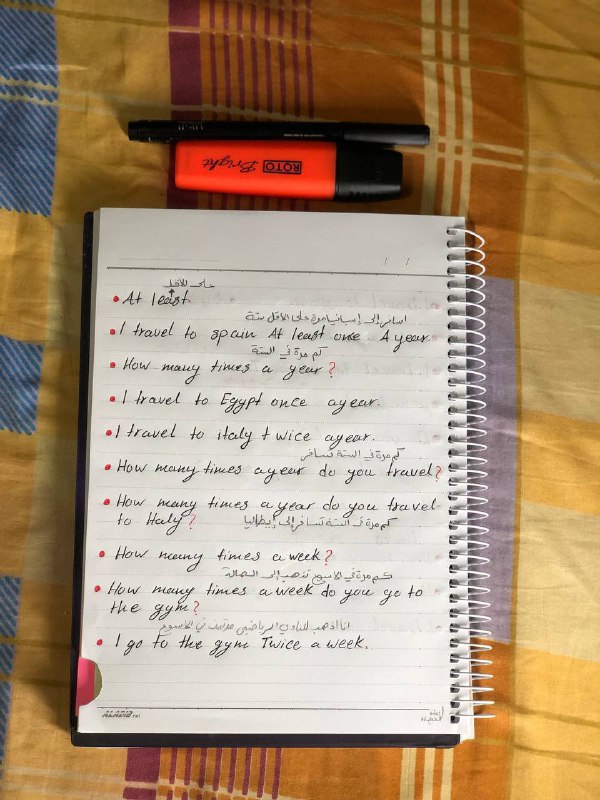 ROTO Bright
/ /
على الأقل
At least
اسافر إلى إسبانيا مرة على الأقل سنة
I travel to spain At least once A year.
كم مرة في السنة
How many times a year?
I travel to Egypt once ayear.
I travel to italy twice ayear.
كم مرة في السنة تسافر
How many times ayear do you travel?
How many times a year do you travel
to Italy?
كم مرة في السنة تسافر إلى إيطاليا
How many times a week?
كم مرة في الاسبوع تذهب إلى الصالة
How many times a week do you go to
the gym?
انا اذهب للنادي الرياضي مرتين في الاسبوع
I go to the gym Twice a week.